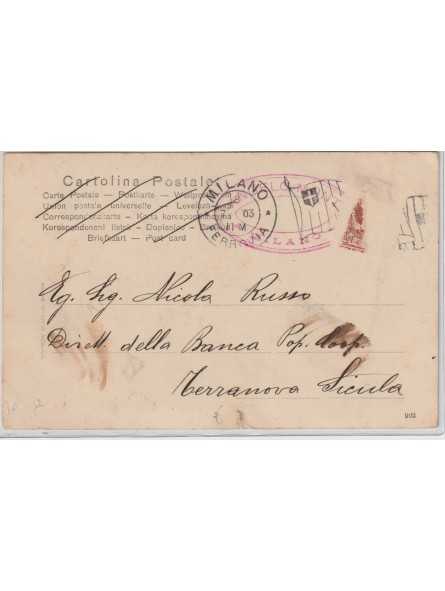 Cartolina Postale
Carte Postale — Postkarte — Weltpostverein
Union postale universelle — Levelező-lap
Correspondenzkarte — Karta korespondencyjna
Korespondenční lístek — Dopisnice
Briefkaart — Post card
MILANO
03
FERROVIA
MILANO
Eg. Sig. Nicola Russo
Dirett della Banca Pop. Coop
Terranova Sicula